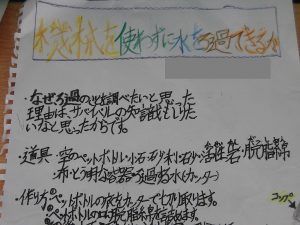 機材を使わずに水をろ過できるか
・なぜろ過の仕方を調べたいと思った
理由は、サバイバルの知識もしりた
いなと思ったからです。
・道具・空のペットボトル・小石・砂利・石・砂・活性炭・脱脂綿
・布・とう明な容器・ろ過する水(カッター)
・作り方①ペットボトルの底をカッターで切り取ります。
ペットボトルの口に脱脂綿を詰めます。
コップ